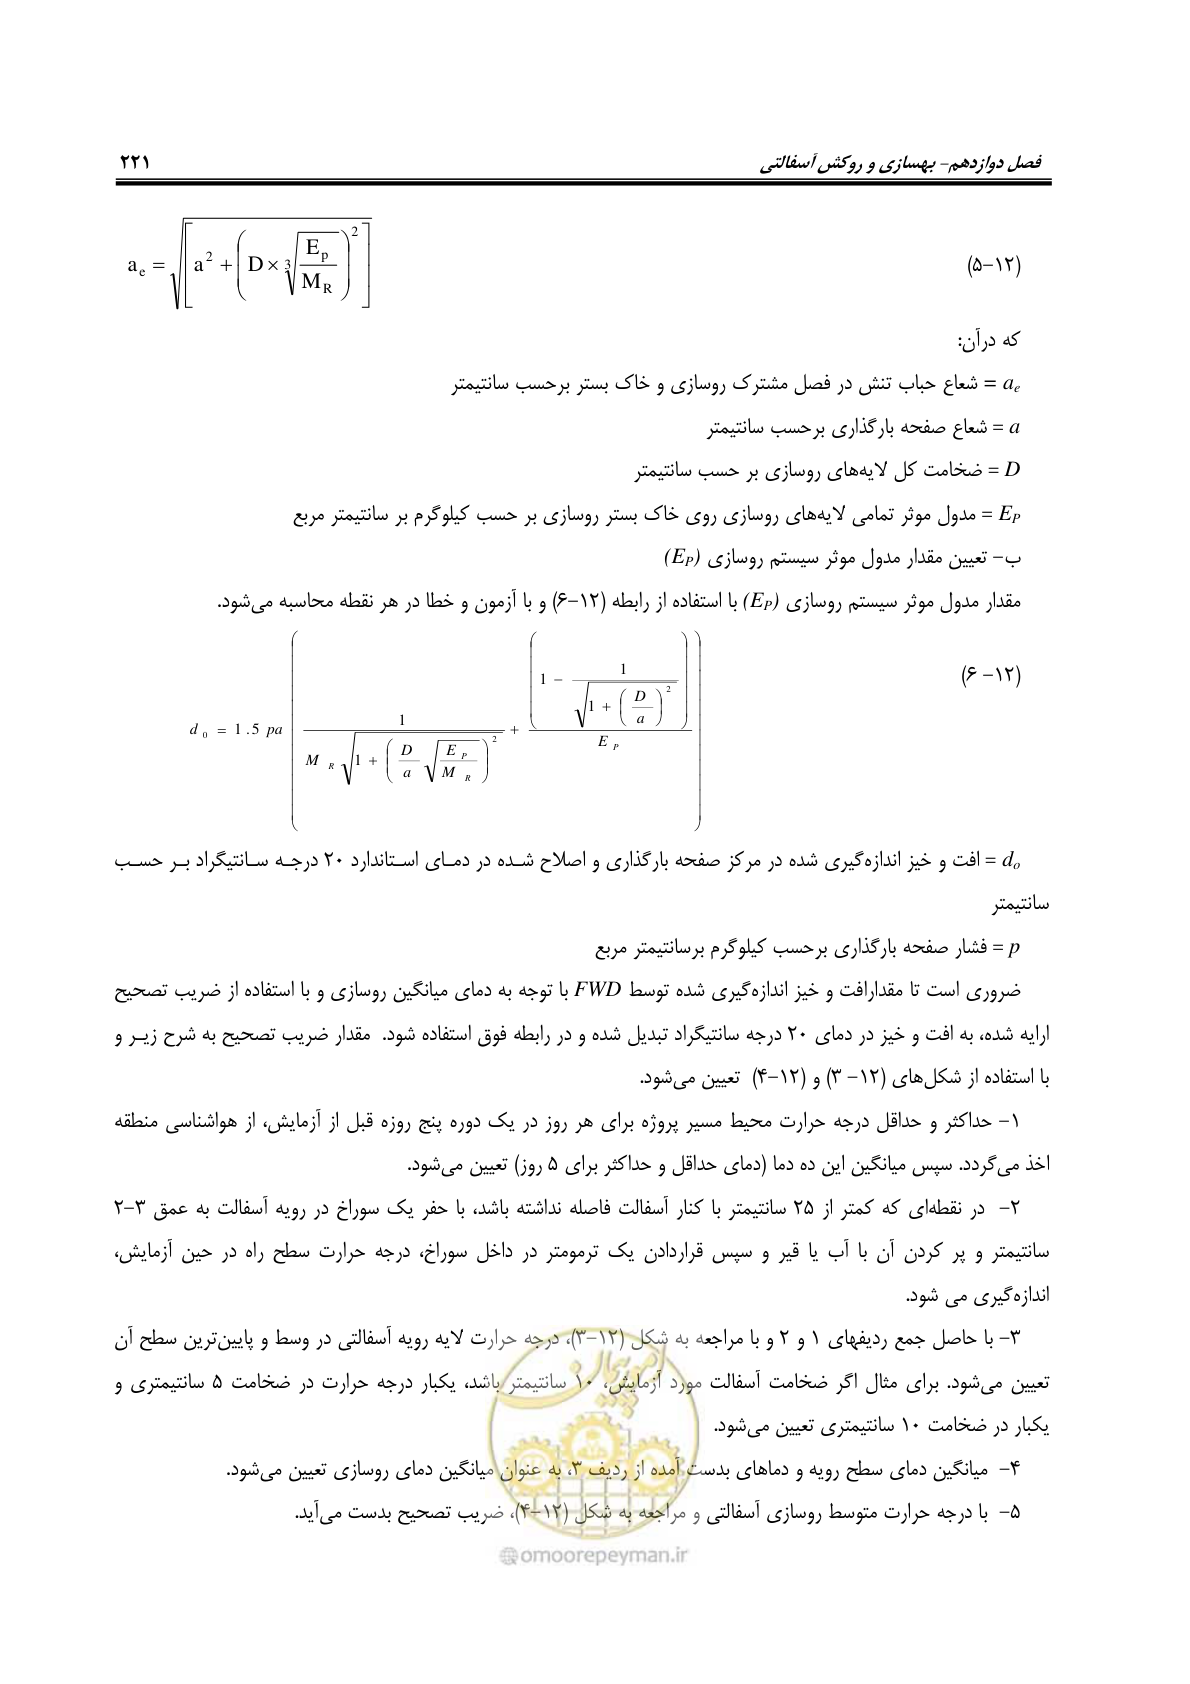 فصل دوازدهم- بهسازی و روکش آسفالتی ۲۲۱
(۵-۱۲) a_e = √[a² + (D × ∛(E_p / M_R))²]
که درآن:
a_e = شعاع حباب تنش در فصل مشترک روسازی و خاک بستر برحسب سانتیمتر
a = شعاع صفحه بارگذاری برحسب سانتیمتر
D = ضخامت کل لایه‌های روسازی بر حسب سانتیمتر
E_P = مدول موثر تمامی لایه‌های روسازی روی خاک بستر روسازی بر حسب کیلوگرم بر سانتیمتر مربع
ب- تعیین مقدار مدول موثر سیستم روسازی (E_P)
مقدار مدول موثر سیستم روسازی (E_P) با استفاده از رابطه (۶-۱۲) و با آزمون و خطا در هر نقطه محاسبه می‌شود.
(۶-۱۲) d_0 = 1.5 pa ( 1 / (M_R √(1 + (D/a √(E_P / M_R))²)) + (1 - 1 / √(1 + (D/a)²)) / E_P )
d_o = افت و خیز اندازه‌گیری شده در مرکز صفحه بارگذاری و اصلاح شـده در دمـای اسـتاندارد ۲۰ درجـه سـانتیگراد بـر حسـب
سانتیمتر
p = فشار صفحه بارگذاری برحسب کیلوگرم برسانتیمتر مربع
ضروری است تا مقدارافت و خیز اندازه‌گیری شده توسط FWD با توجه به دمای میانگین روسازی و با استفاده از ضریب تصحیح
ارایه شده، به افت و خیز در دمای ۲۰ درجه سانتیگراد تبدیل شده و در رابطه فوق استفاده شود. مقدار ضریب تصحیح به شرح زیـر و
با استفاده از شکل‌های (۱۲- ۳) و (۱۲-۴) تعیین می‌شود.
۱- حداکثر و حداقل درجه حرارت محیط مسیر پروژه برای هر روز در یک دوره پنج روزه قبل از آزمایش، از هواشناسی منطقه
اخذ می‌گردد. سپس میانگین این ده دما (دمای حداقل و حداکثر برای ۵ روز) تعیین می‌شود.
۲- در نقطه‌ای که کمتر از ۲۵ سانتیمتر با کنار آسفالت فاصله نداشته باشد، با حفر یک سوراخ در رویه آسفالت به عمق ۳-۲
سانتیمتر و پر کردن آن با آب یا قیر و سپس قراردادن یک ترمومتر در داخل سوراخ، درجه حرارت سطح راه در حین آزمایش،
اندازه‌گیری می شود.
۳- با حاصل جمع ردیفهای ۱ و ۲ و با مراجعه به شکل (۱۲-۳)، درجه حرارت لایه رویه آسفالتی در وسط و پایین‌ترین سطح آن
تعیین می‌شود. برای مثال اگر ضخامت آسفالت مورد آزمایش، ۱۰ سانتیمتر باشد، یکبار درجه حرارت در ضخامت ۵ سانتیمتری و
یکبار در ضخامت ۱۰ سانتیمتری تعیین می‌شود.
۴- میانگین دمای سطح رویه و دماهای بدست آمده از ردیف ۳، به عنوان میانگین دمای روسازی تعیین می‌شود.
۵- با درجه حرارت متوسط روسازی آسفالتی و مراجعه به شکل (۱۲-۴)، ضریب تصحیح بدست می‌آید.
امور پیمان
@omoorepeyman.ir